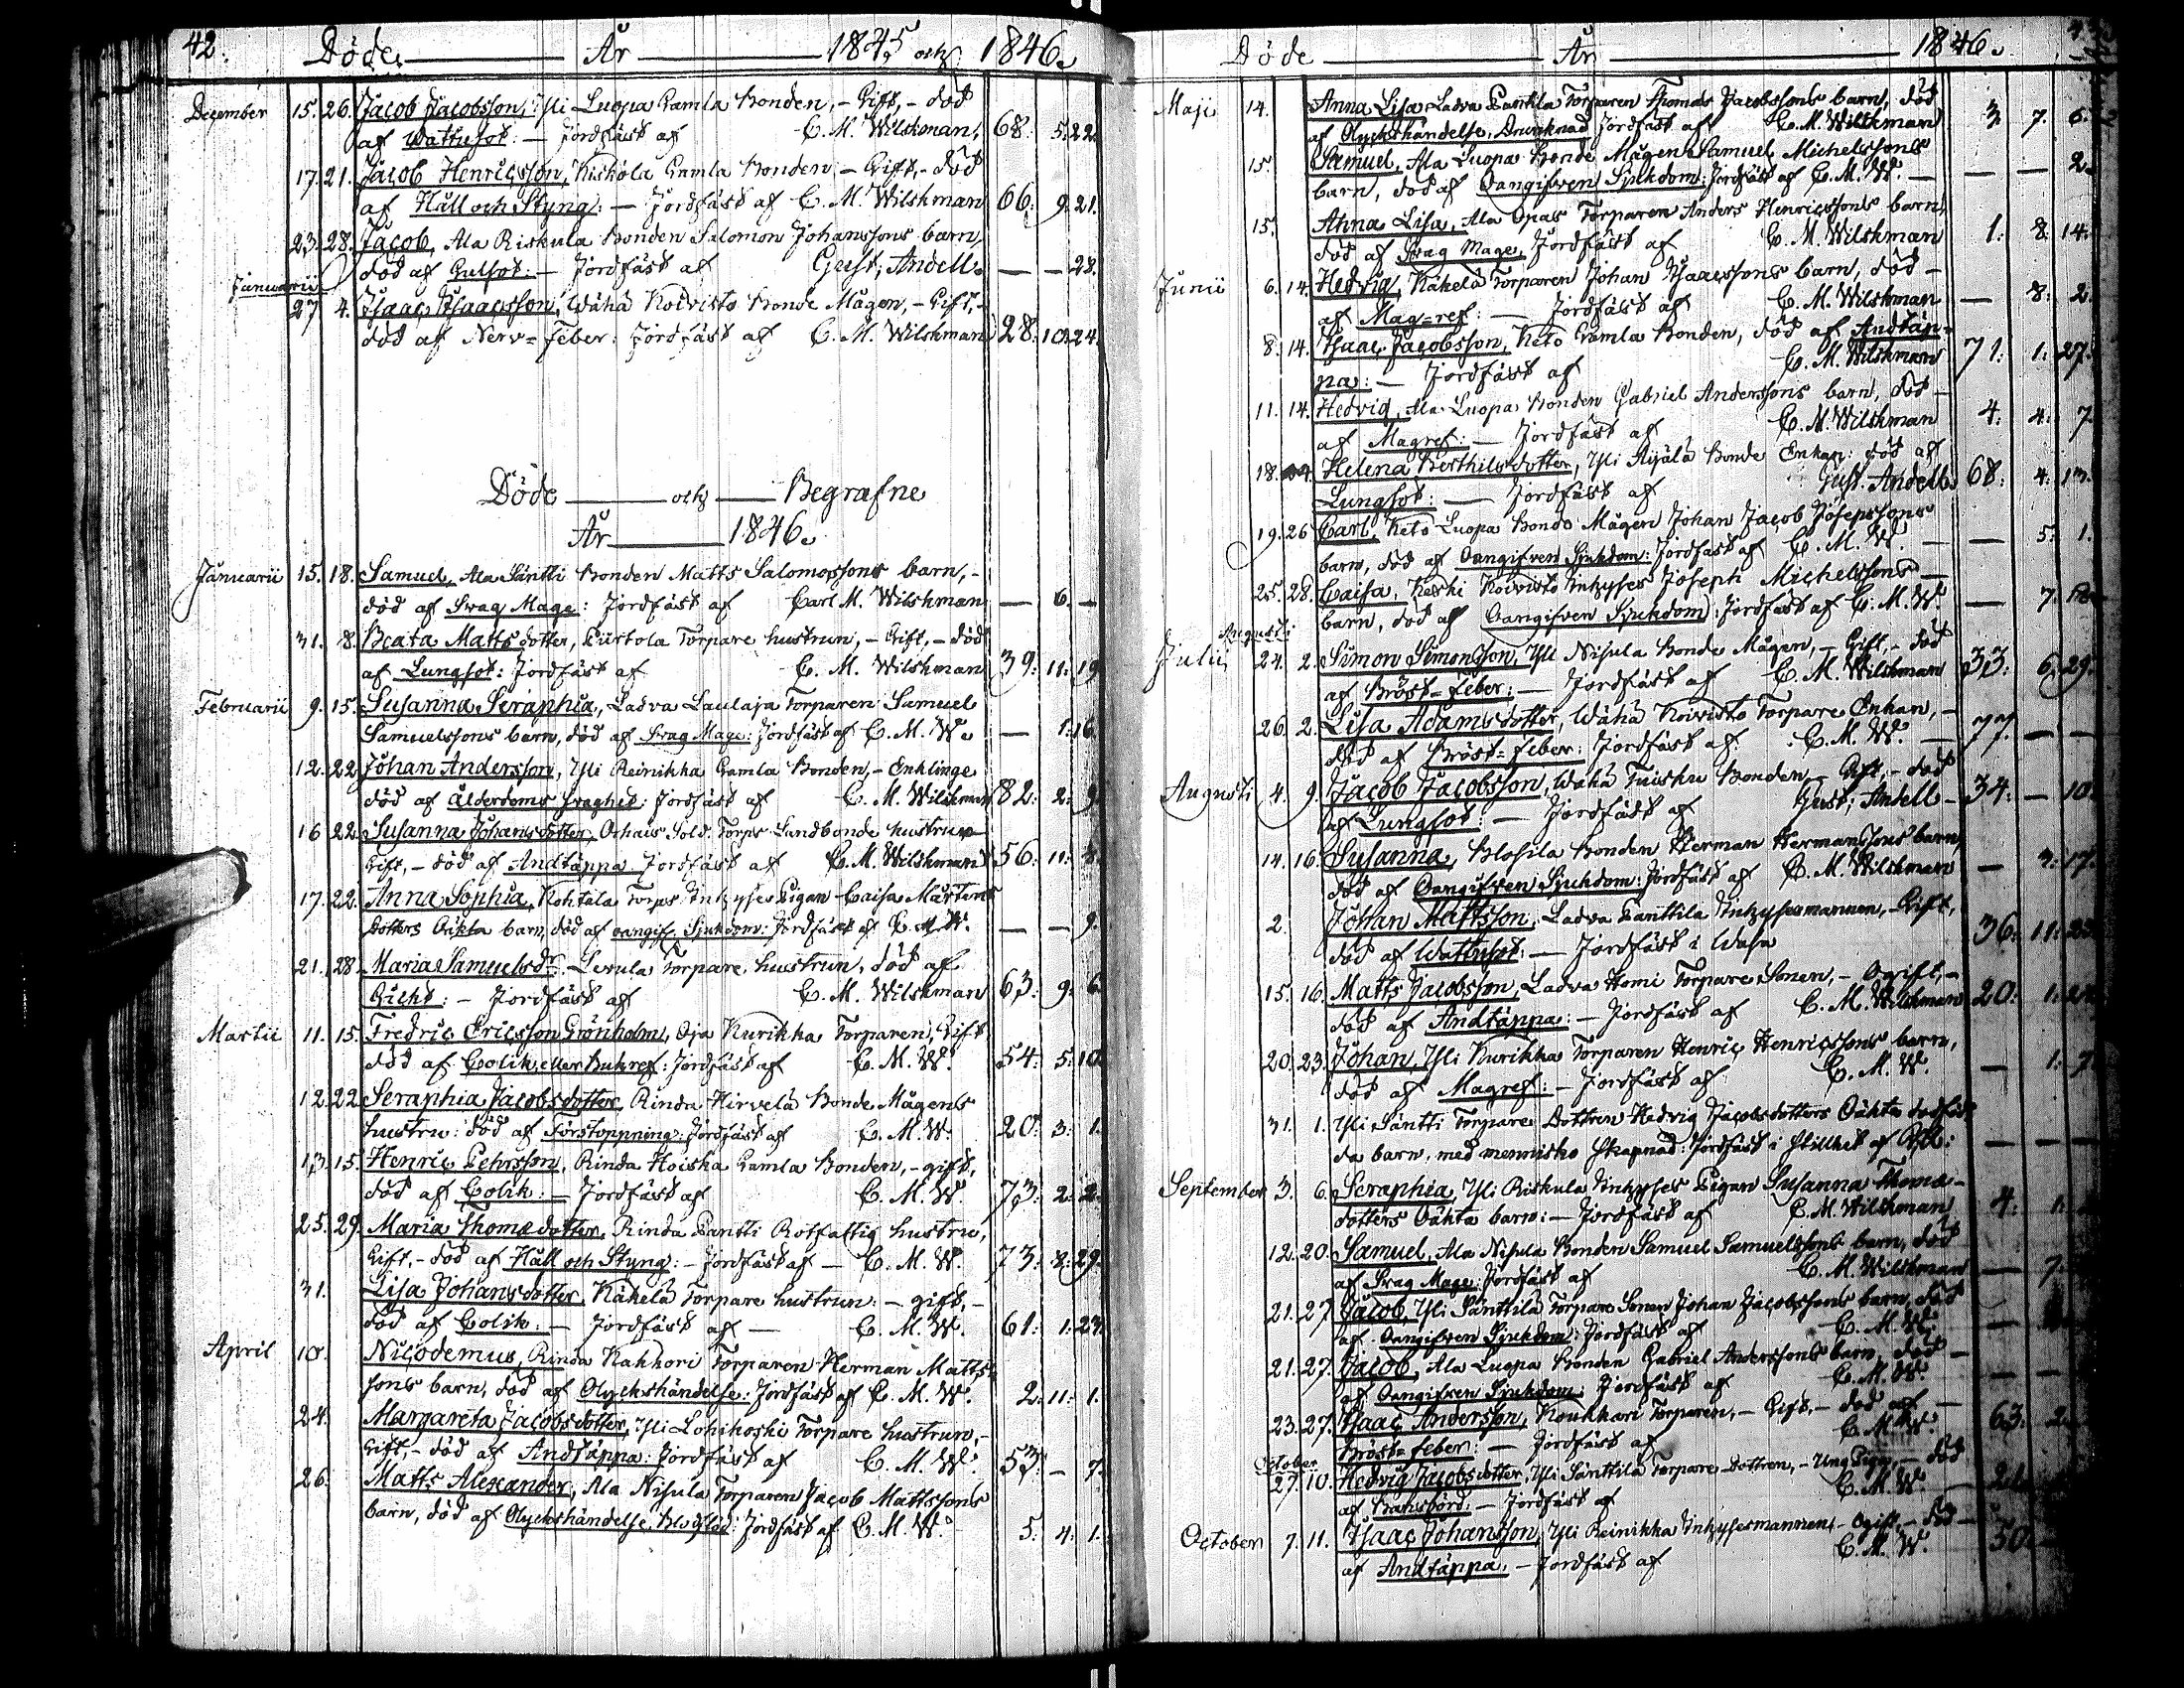 42. Döde År 1845 och 1846.
December 15. 26. Jacob Jacobsson, Yli Luopa Gamla Bonden, - Gift, - död
af Wattusot: - Jordfäst af C. M. Wilskman, 68: 5: 22.
17. 21. Jacob Henricsson, Kiskola Gamla Bonden, - Gift, - död
af Håll och Styng: - Jordfäst af C. M. Wilskman 66: 9: 21.
23. 28. Jacob, Ala Riskula Bonden Salomon Johanssons barn,
död af Gulsot: - Jordfäst af Gust. Andell. — — 28.
Januarii
27 4. Isaac Isaacsson, Wähä Koivisto Bonde Mågen, - Gift, -
död af Nerv-Feber: Jordfäst af C. M. Wilskman 28: 10: 24.
Döde och Begrafne
År 1846.
Januarii 15. 18. Samuel, Ala Säntti Bonden Matts Salomossons barn, -
död af Svag Mage: Jordfäst af Carl M. Wilskman — 6. —
31. 8. Beata Mattsdotter, Piirtola Torpare hustrun, - Gift, - död
af Lungsot: Jordfäst af C. M. Wilskman 39: 11: 19
Februarii 9. 15. Susanna Seraphia, Ladva Laulaja Torparen Samuel
Samuelssons barn, död af Svag Mage: Jordfäst af C. M. W. — 1: 16.
12. 22. Johan Andersson, Yli Reinikka Gamla Bonden, - Enklinge
död af Ålderdoms svaghet: Jordfäst af C. M. Wilskman 82: 2: 9.
16 22. Susanna Johansdotter, Orhais Sold. Torps Landbonde hustrun
Gift, - död af Andtäppa Jordfäst af C. M. Wilskman 56: 11: 8.
17. 22. Anna Sophia, Kohtala Torps Inhyses Pigan Caisa Mårtens
dotters Oäkta barn, död af oangif. Sjukdom: Jordfäst af C. M. W. — — 9.
21. 28 Maria Samuelsdr Lerula Torpare hustrun, död af
Gicht: - Jordfäst af C. M. Wilskman 63: 9: 6.
Martii 11. 15. Fredric Ericsson Grönholm, Oja Kurikka Torparen, Gift
död af Colik, eller Bukref: Jordfäst af C. M. W. 54: 5: 10
12. 22 Seraphia Jacobsdotter, Rinda Hirvelä Bonde Mågens
hustru: död af Förstoppning: Jordfäst af C. M. W. 20: 3: 1.
13. 15. Henric Pehrsson, Rinda Hoiska Gamla Bonden, - gift,
död af Colik: - Jordfäst af C. M. W. 73: 2: 2.
25. 29. Maria Thomædotter, Rinda Pantti Rotfattig hustru,
Gift, - död af Håll och Styng: - Jordfäst af - C. M. W. 73: 2: 29.
31. Lisa Johansdotter, Käkelä Torpare hustrun: - gift, -
död af Colik: - Jordfäst af - C. M. W. 61: 1: 27.
April 10. Nicodemus, Rinda Kakkori Torparen Herman Matts-
sons barn, död af Olyckshändelse: Jordfäst af C. M. W. 2: 11: 1.
24. Margareta Jacobsdotter, Yli-Lohikoski Torpare hustrun, -
Gift, - död af Andtäppa: Jordfäst af C. M. W. 53: - 7.
26. Matts Alexander, Ala Nisula Torparen Jacob Mattssons
barn, död af Olyckshändelse, Jordfäst af C. M. W. 5. 4: 1.
Döde År 1846.
Maji 14. Anna Lisa Ladva Panttila Torparen Thomas Jacobssons barn, död
af Olyckshändelse, Drunknad Jordfäst af C. M. Wilskman 3. 7. 6.
15. Samuel, Ala Luopa Bonde Mågen Samuel Michelssons
barn, död af Oangifven Sjukdom: Jordfäst af C. M. W. — — 2.
15. Anna Lisa, Ala Opas Torparen Anders Henricssons barn,
död af Svag Mage, Jordfäst af C. M. Wilskman 1: 8: 14.
Junii 6. 14. Hedvig, Käkelä Torparen Johan Isaacssons barn, död -
af Mag-ref: - Jordfäst af C. M. Wilskman — 8: 2.
8. 14. Isaac Jacobsson, Keto Gamla Bonden, död af Andtäp-
pa: - Jordfäst af C. M. Wilskman 71: 1: 27.
11. 14. Hedvig, Ala Luopa Bonden Gabriel Anderssons barn, död -
af Magref: - Jordfäst af C. M. Wilskman 4: 4: 7
18. Helena Berthilsdotter, Yli Äijälä Bonde Enkan: död af
Lungsot: - Jordfäst af Gust. Andell. 68: 4: 13.
19. 26 Carl, Keto Luopa Bonde Mågen Johan Jacob Josepssons
barn, död af Oangifven Sjukdom: Jordfäst af C. M. W. — 5: 1.
25. 28. Caisa, Keski Koivisto Inhyses Joseph Michelssons
barn, död af Oangifven Sjukdom: Jordfäst af C. M. W. — 7.
Augusti
Julii 24. 2. Simon Simonsson, Yli Nisula Bonde Mågen, - Gift, - död
af Bröst-Feber: - Jordfäst af C. M. Wilskman 33: 6: 29.
26. 2. Lisa Adamsdotter, Wähä Koivisto Torpare Enkan, -
död af Bröst-Feber: Jordfäst af C. M. W. 77. — —
Augusti 4. 9. Jacob Jacobsson, Wähä Tuisku Bonden, - Gift, - död
af Lungsot: - Jordfäst af Gust. Andell - 34: — 10.
14. 16. Susanna, Blosila Bonden Herman Hermanssons barn,
död af Oangifven Sjukdom: Jordfäst af C. M. Wilskman — 3: 17.
2. Johan Mattsson, Ladva Panttila Inhysesmannen, - Gift,
död af Wattusot: - Jordfäst i Wasa 36: 11:
15. 16. Matts Jacobsson, Ladva Homi Torpare Sonen, - Ogift, -
död af Andtäppa: - Jordfäst af C. M. Wilskman 20: 1:
20. 23. Johan, Yli Kurikka Torparen Henric Henricssons barn,
död af Magref: - Jordfäst af C. M. W. — 1: 7
31. 1. Yli Säntti Torpare Dottren Hedvig Jacobsdotters Oäkta dödföd-
da barn, med mennisko skapnad: Jordfäst i stillhet af — — —
September 3. 6. Seraphia, Yli Riskula Inhyses Pigan Susanna Thomæ-
dotters Oäkta barn: - Jordfäst af C. M. Wilskman 4:
12. 20. Samuel, Ala Nisula Bonden Samuel Samuelssons barn, död
af Svag Mage: Jordfäst af C. M. Wilskman — 7.
21. 27. Jacob, Yli Säntti­lä Torpare Sonen Johan Jacobssons barn, död
af Oangifven Sjukdom: Jordfäst af C. M. W. —
21. 27. Jacob, Ala Luopa Bonden Gabriel Anderssons barn, död -
af Oangifven Sjukdom: Jordfäst af C. M. W. — —
23. 27. Isaac Andersson, Koukkari Torparen, - Gift, - död af -
Bröst-feber: - Jordfäst af C. M. W. 63: 2
October
27. 10. Hedvig Jacobsdotter, Yli Säntti­lä Torpare Dottren, - Ung Piga, - död
af Barnsbörd: - Jordfäst af C. M. W.
October 7. 11. Isaac Johansson, Yli Reinikka Inhysesmannen, - Ogift, - död -
af Andtäppa: - Jordfäst af C. M. W. 50.